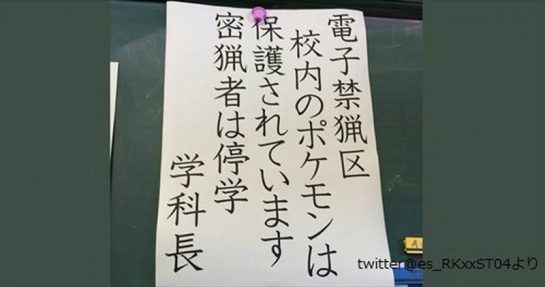 電子禁猟区
校内のポケモンは
保護されています
密猟者は停学
学科長
twitter@es_RKxxST04より